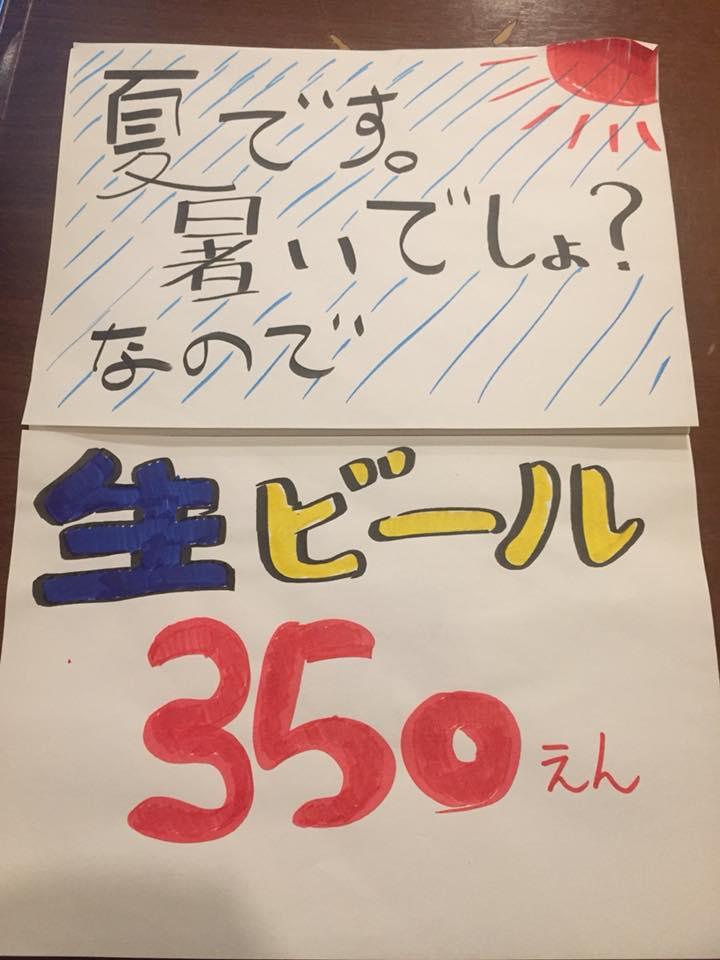 夏です。
暑いでしょ?
なので
生ビール
350えん